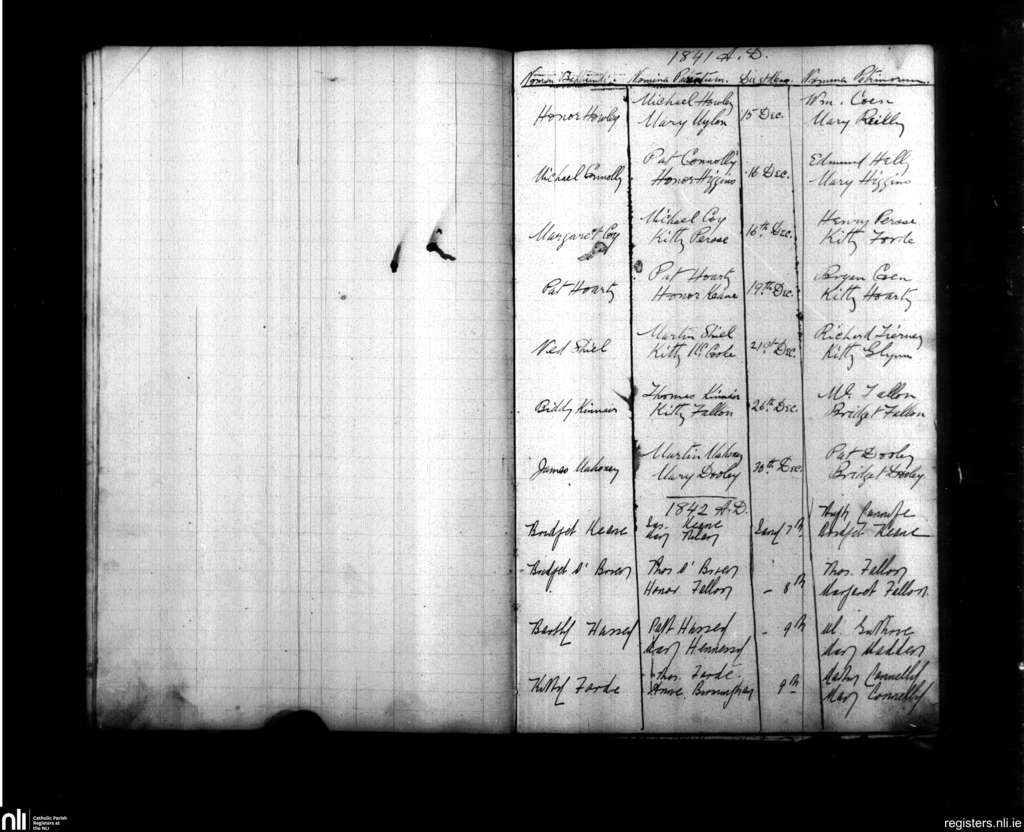 1841 A.D.
Nomen Baptizati. Nomina Parentum. Die et Mens. Nomina Patrinorum.
Michael Howley Wm. Coen
Honor Howley Mary Nylon 15 Dec. Mary Reilly
Pat Connolly Edmund Hally
Michael Connolly Honor Higgins 16 Dec. Mary Higgins
Michael Coy Henry Persse
Margaret Coy Kitty Persse 16th Dec. Kitty Forde
Pat Hoarty Bryan Coen
Pat Hoarty Honor Keane 19th Dec. Kitty Hoarty
Martin Shiel Richard Tierney
Ned Shiel Kitty McCoole 21st Dec. Kitty Glynn
Thomas Kinnair Ml. Fallon
Biddy Kinnair Kitty Fallon 26th Dec. Bridget Fallon
Martin Mahoney Pat Dooley
James Mahoney Mary Dooley 30th Dec. Bridget Dooley
1842 A.D.
Jas. Keane
Bridget Keane Mary 7th Bridget Keane
Bridget O'Brien Thos O'Brien Thos. Fallon
Honor Fallon - 8th Margaret Fallon
Barthy Hassey Patt Hassey - 9th Ml.
Mary Hennessy Mary Madden
Thos. Forde Connelly
Kitty Forde 9th Mary Connelly
nli Catholic Parish
Registers at
the NLI
registers.nli.ie